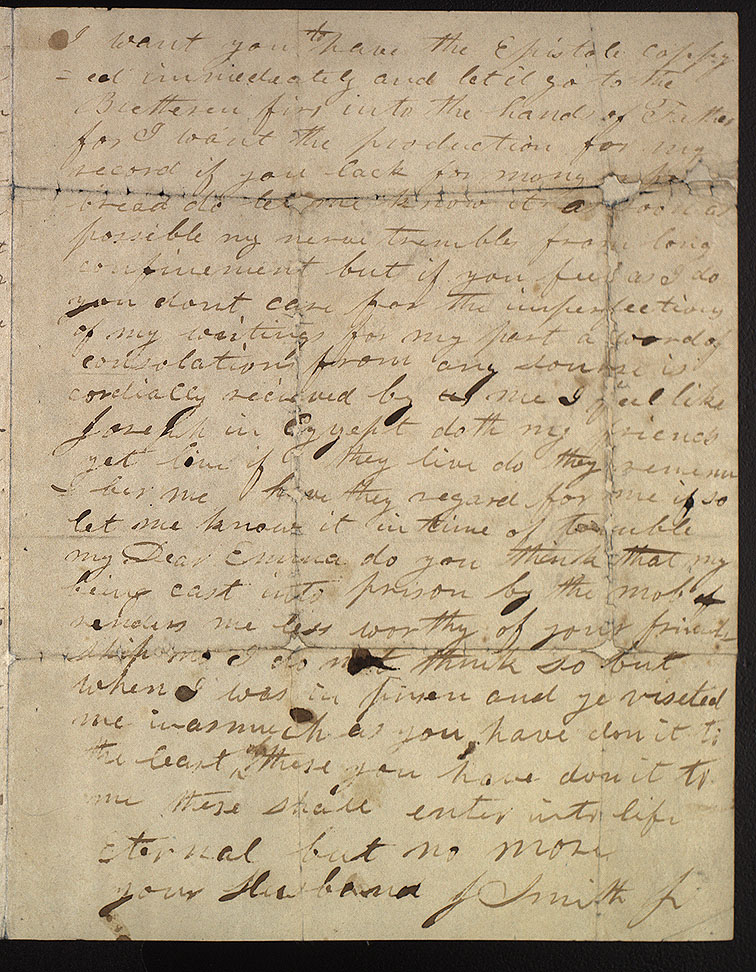 I want you to have the Epistole coppy
=ed immedeately and let it go to the
Bretheren firs into the hands of Father
for I want the production for my
record if you lack for mony or for
bread do let me know it as soon as
possible my nerve trembles from long
confinement but if you feel as I do
you dont care for the imperfections
of my writings for my part a word of
consolation from any sourse is
cordially recieved by us me I feel like
Joseph in Egyept doth my friends
yet live if they live do they remem
=ber me have they regard for me if so
let me know it in time of trouble
my Dear Emma do you think that my
being cast into prison by the mob
renders me less worthy of your friend=
ship no I do not think so but
when I was in prisen and ye viseted
me inasmuch as you have don it to
the least of these you have don it to
me these shall enter into life
Eternal but no more
your Husband J Smith Jr